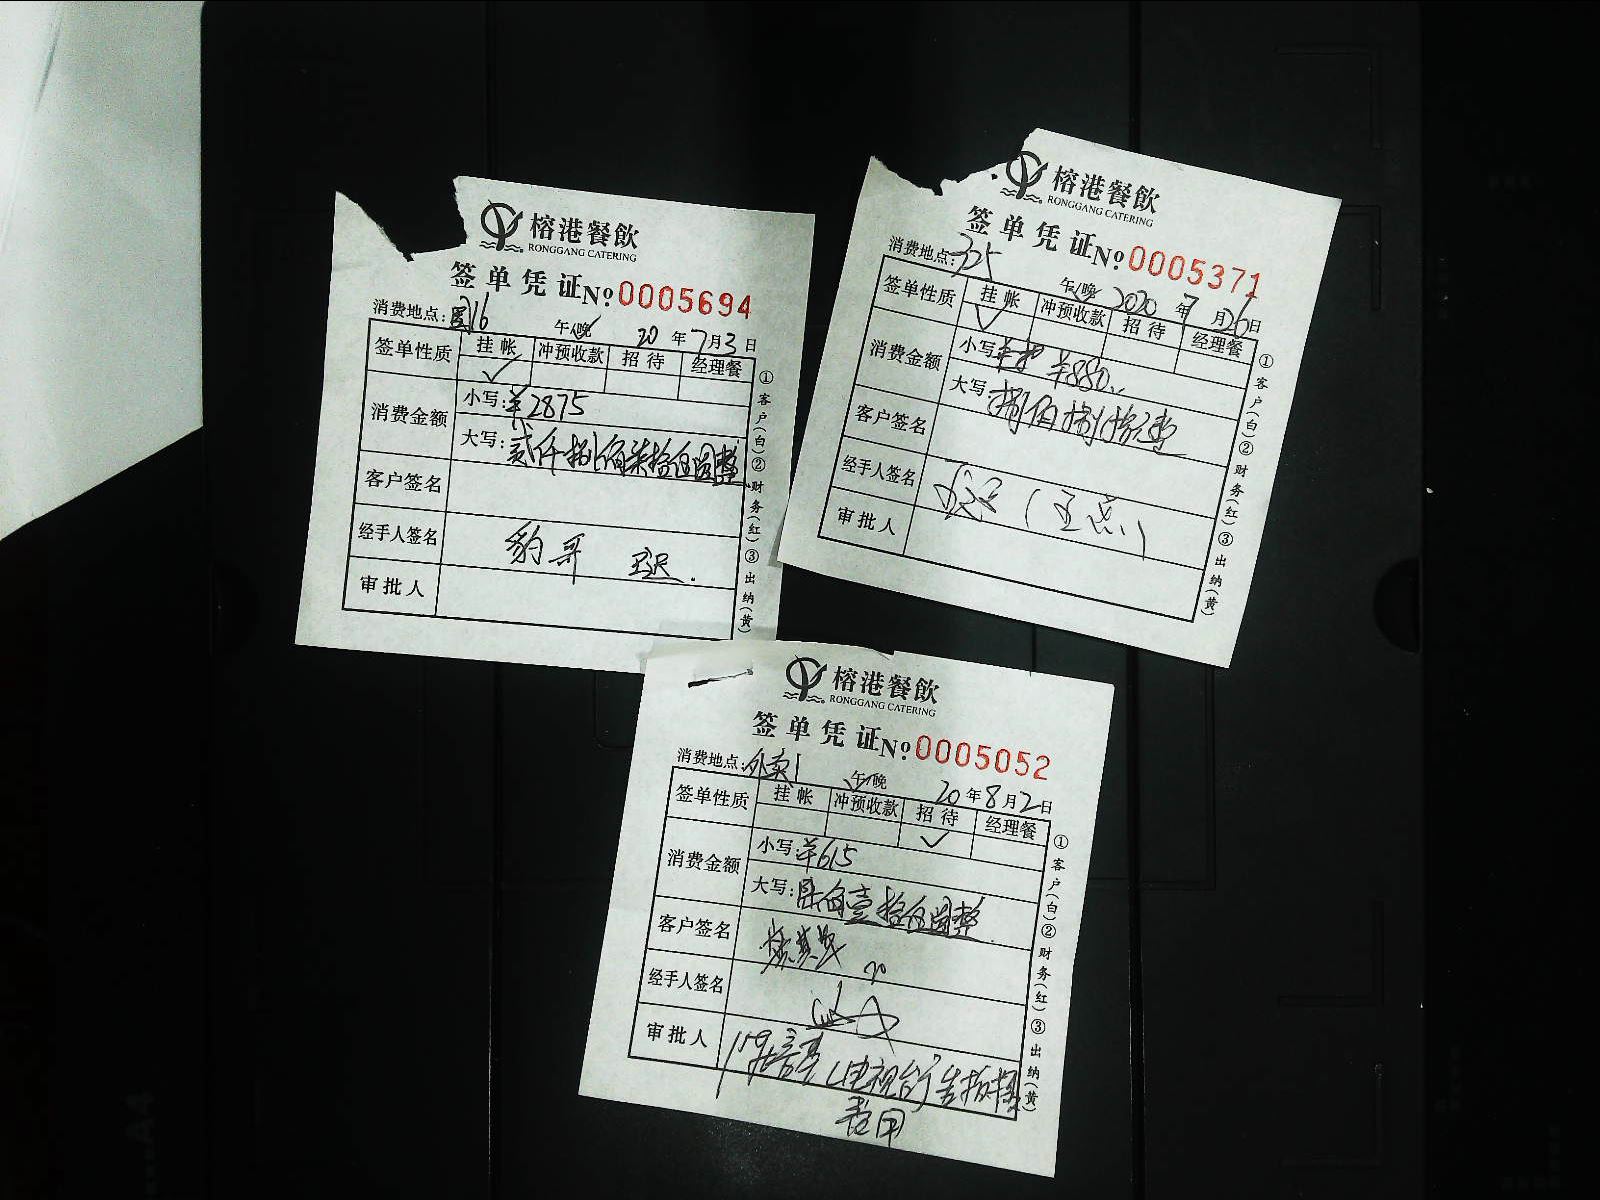 榕港餐飲
RONGGANG CATERING
签单凭证 No 0005694
消费地点: 216 午/晚 20年7月3日
签单性质 挂帐 冲预收款 招待 经理餐
消费金额 小写: ¥2875
大写: 贰仟捌佰柒拾伍圆整
客户签名
经手人签名 豹哥
审批人
①客户(白)②财务(红)③出纳(黄)
榕港餐飲
RONGGANG CATERING
签单凭证 No 0005371
消费地点: 325 午/晚 2020年7月26日
签单性质 挂帐 冲预收款 招待 经理餐
消费金额 小写: ¥880
大写: 捌佰捌拾元整
客户签名
经手人签名
审批人
①客户(白)②财务(红)③出纳(黄)
榕港餐飲
RONGGANG CATERING
签单凭证 No 0005052
消费地点: 外卖1 午/晚 20年8月2日
签单性质 挂帐 冲预收款 招待 经理餐
消费金额 小写: ¥615
大写: 陆佰壹拾伍圆整
客户签名
经手人签名
审批人 电视台广告拍摄
套用
①客户(白)②财务(红)③出纳(黄)